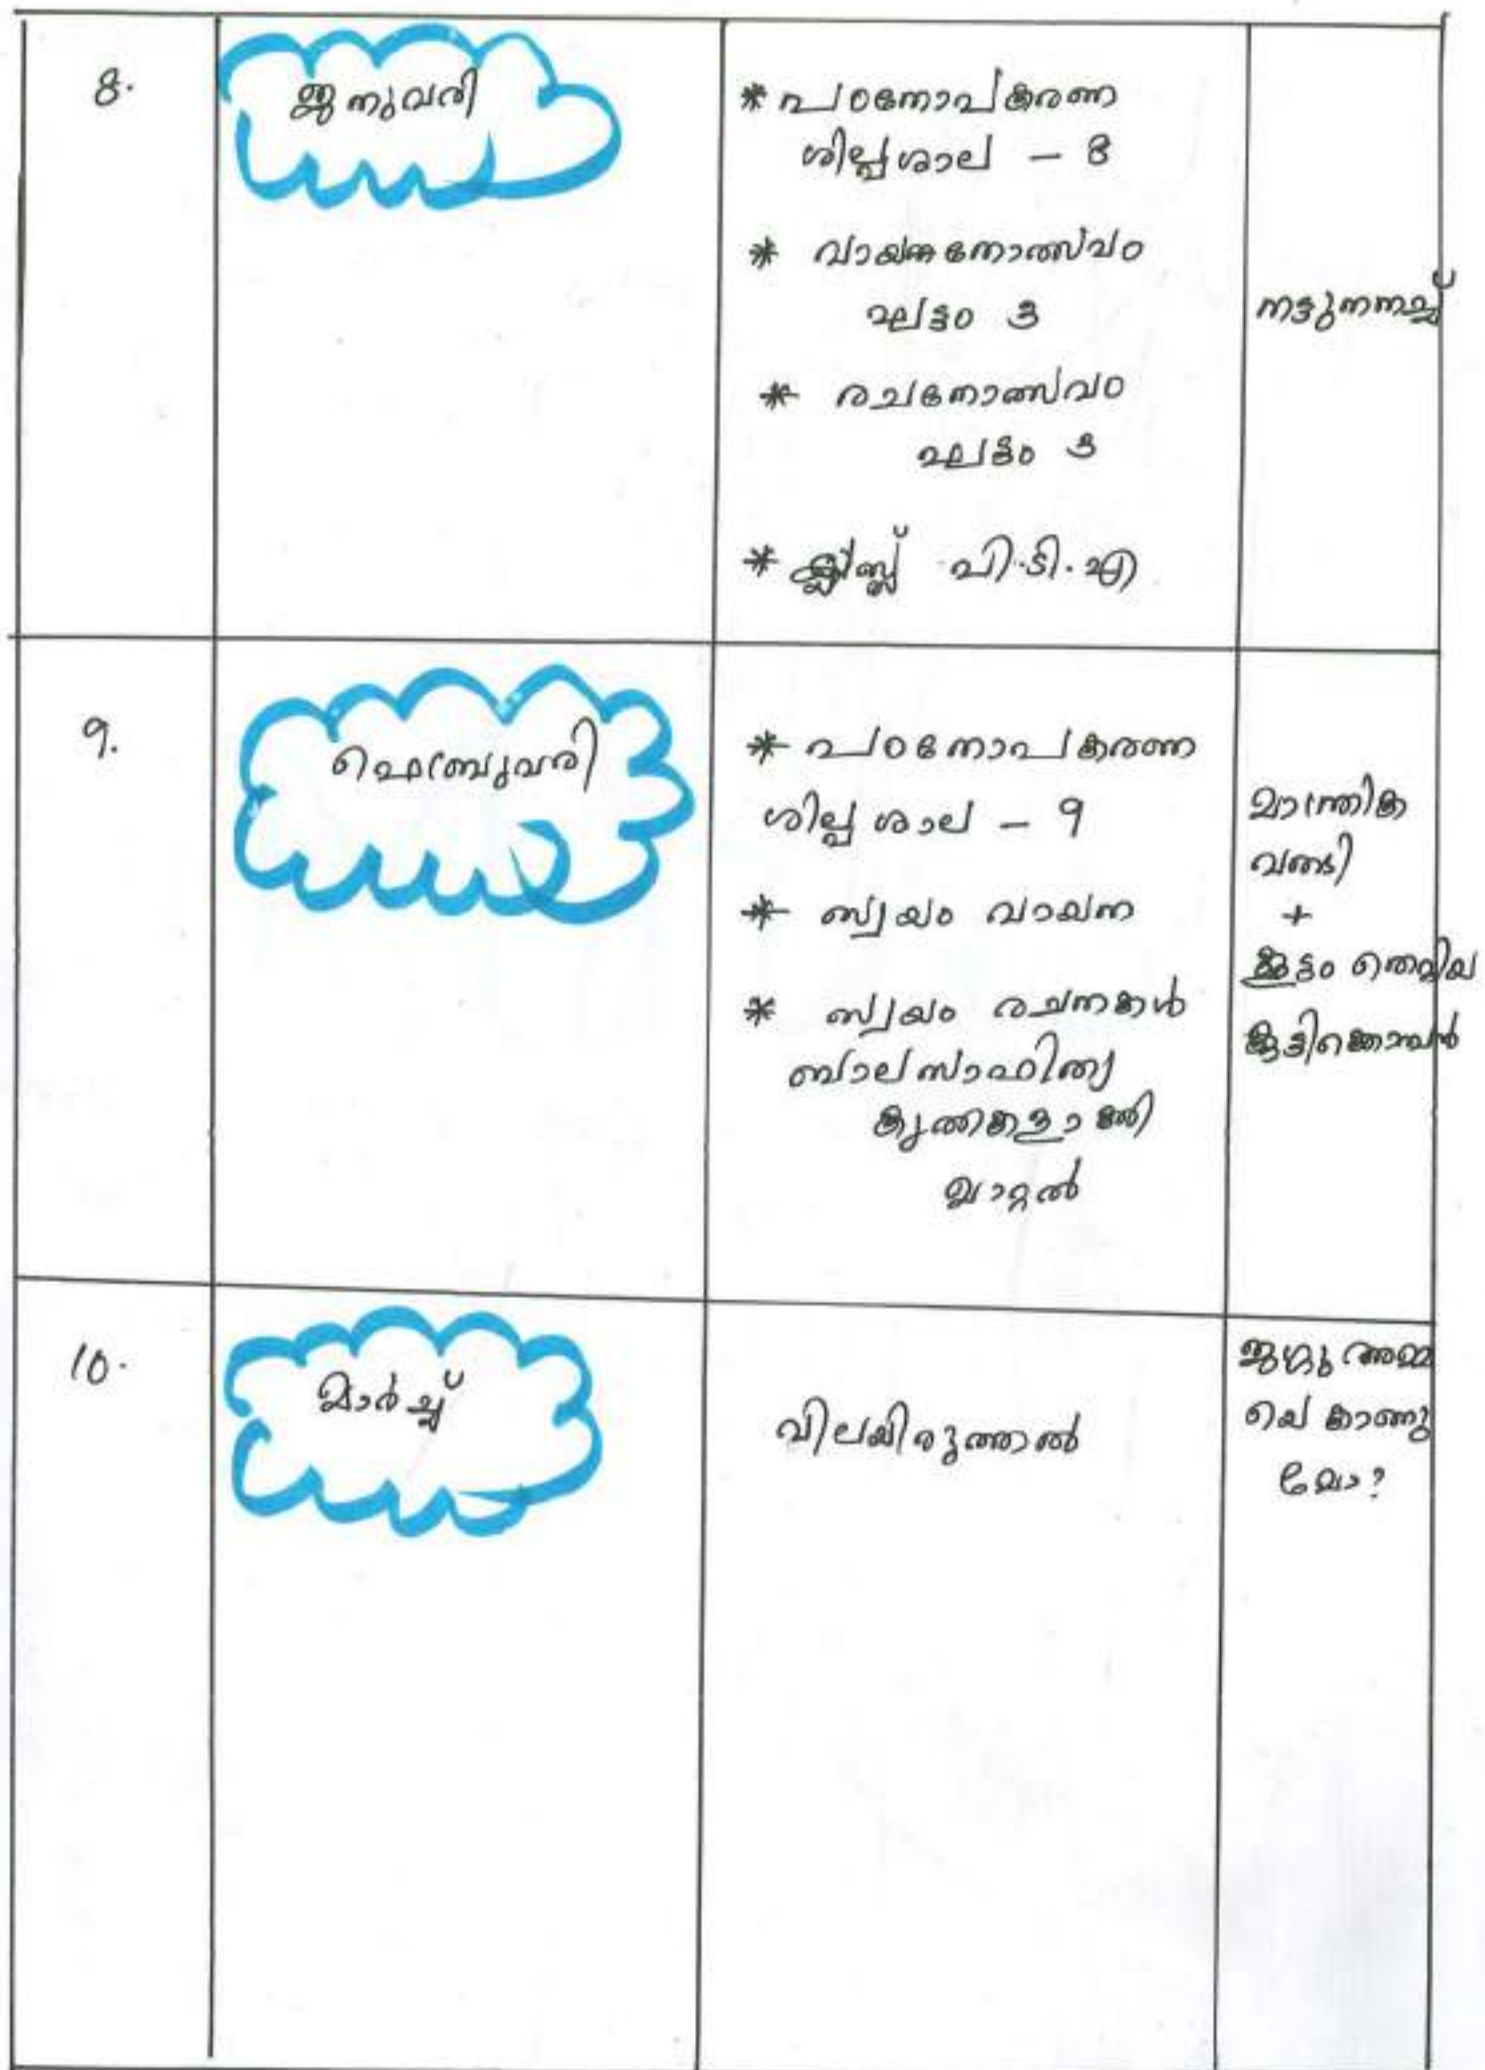 8.
ജനുവരി
* പഠനോപകരണ
ശില്പശാല - 8
* വായനോത്സവം
ഘട്ടം 3
* രചനോത്സവം
ഘട്ടം 3
* ക്ലാസ്സ് പി.ടി.എ
നട്ടുനനച്ച്
9.
ഫെബ്രുവരി
* പഠനോപകരണ
ശില്പശാല - 9
* സ്വയം വായന
* സ്വയം രചനകൾ
ബാലസാഹിത്യ
കൃതികളാക്കി
മാറ്റൽ
മാന്ത്രിക
വണ്ടി
+
കൂട്ടം തെറ്റിയ
കുട്ടിക്കൊമ്പൻ
10.
മാർച്ച്
വിലയിരുത്തൽ
ജഗ്ഗു അമ്മ
യെ കാണു
മോ?